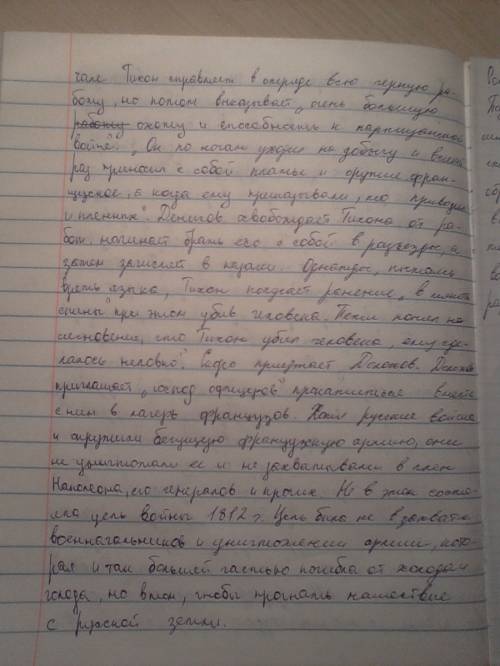 чале Тихон справляет в отряде всю черную ра-
боту, но потом выказывает „очень большую
охоту и способность к партизанской
войне". „Он по ночам уходил на добычу и всякий
раз приносил с собой платье и оружие фран-
цузское, а когда ему приказывали, то приводил
и пленных". Денисов освобождает Тихона от ра-
бот, начинает брать его с собой в разъезды, а
затем зачисляет в казаки. Однажды, пытаясь
взять языка, Тихон получает ранение „в мякоть
спины" при этом убив человека. Петя понял на
мгновение, что Тихон убил человека, ему сде-
лалось неловко". Вскоре приезжает Долохов. Долохов
приглашает „господ офицеров" прокатиться вместе
с ним в лагерь французов. Хотя русские войска
и окружили бегущую французскую армию, они
не уничтожали ее и не захватывали в плен
Наполеона, его генералов и прочих. Не в этом состо-
яла цель войны 1812 г. Цель была не в захвате
военначальников и уничтожении армии, кото-
рая и так большей частью погибла от холода и
голода, но в том, чтобы прогнать нашествие
с русской земли.